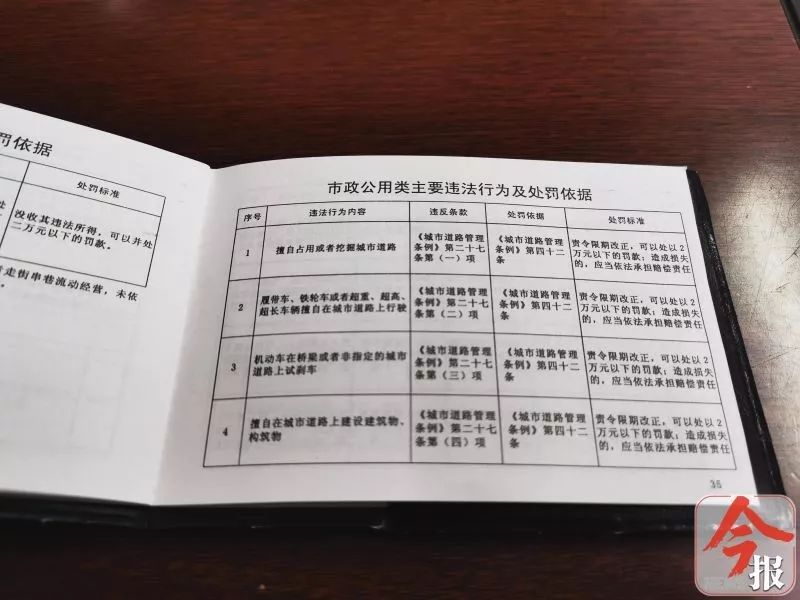 罚依据
处罚标准
处
没收其违法所得，可以并处
二万元以下的罚款。
走街串巷流动经营，未依
市政公用类主要违法行为及处罚依据
序号 违法行为内容 违反条款 处罚依据 处罚标准
1
擅自占用或者挖掘城市道路
《城市道路管理
条例》第二十七
条第（一）项
《城市道路管理
条例》第四十二
条
责令限期改正，可以处以2
万元以下的罚款；造成损失
的，应当依法承担赔偿责任
2
履带车、铁轮车或者超重、超高、
超长车辆擅自在城市道路上行驶
《城市道路管理
条例》第二十七
条第（二）项
《城市道路管理
条例》第四十二
条
责令限期改正，可以处以2
万元以下的罚款；造成损失
的，应当依法承担赔偿责任
3
机动车在桥梁或者非指定的城市
道路上试刹车
《城市道路管理
条例》第二十七
条第（三）项
《城市道路管理
条例》第四十二
条
责令限期改正，可以处以2
万元以下的罚款；造成损失
的，应当依法承担赔偿责任
4
擅自在城市道路上建设建筑物、
构筑物
《城市道路管理
条例》第二十七
条第（四）项
《城市道路管理
条例》第四十二
条
责令限期改正，可以处以2
万元以下的罚款；造成损失
的，应当依法承担赔偿责任
35
今
报